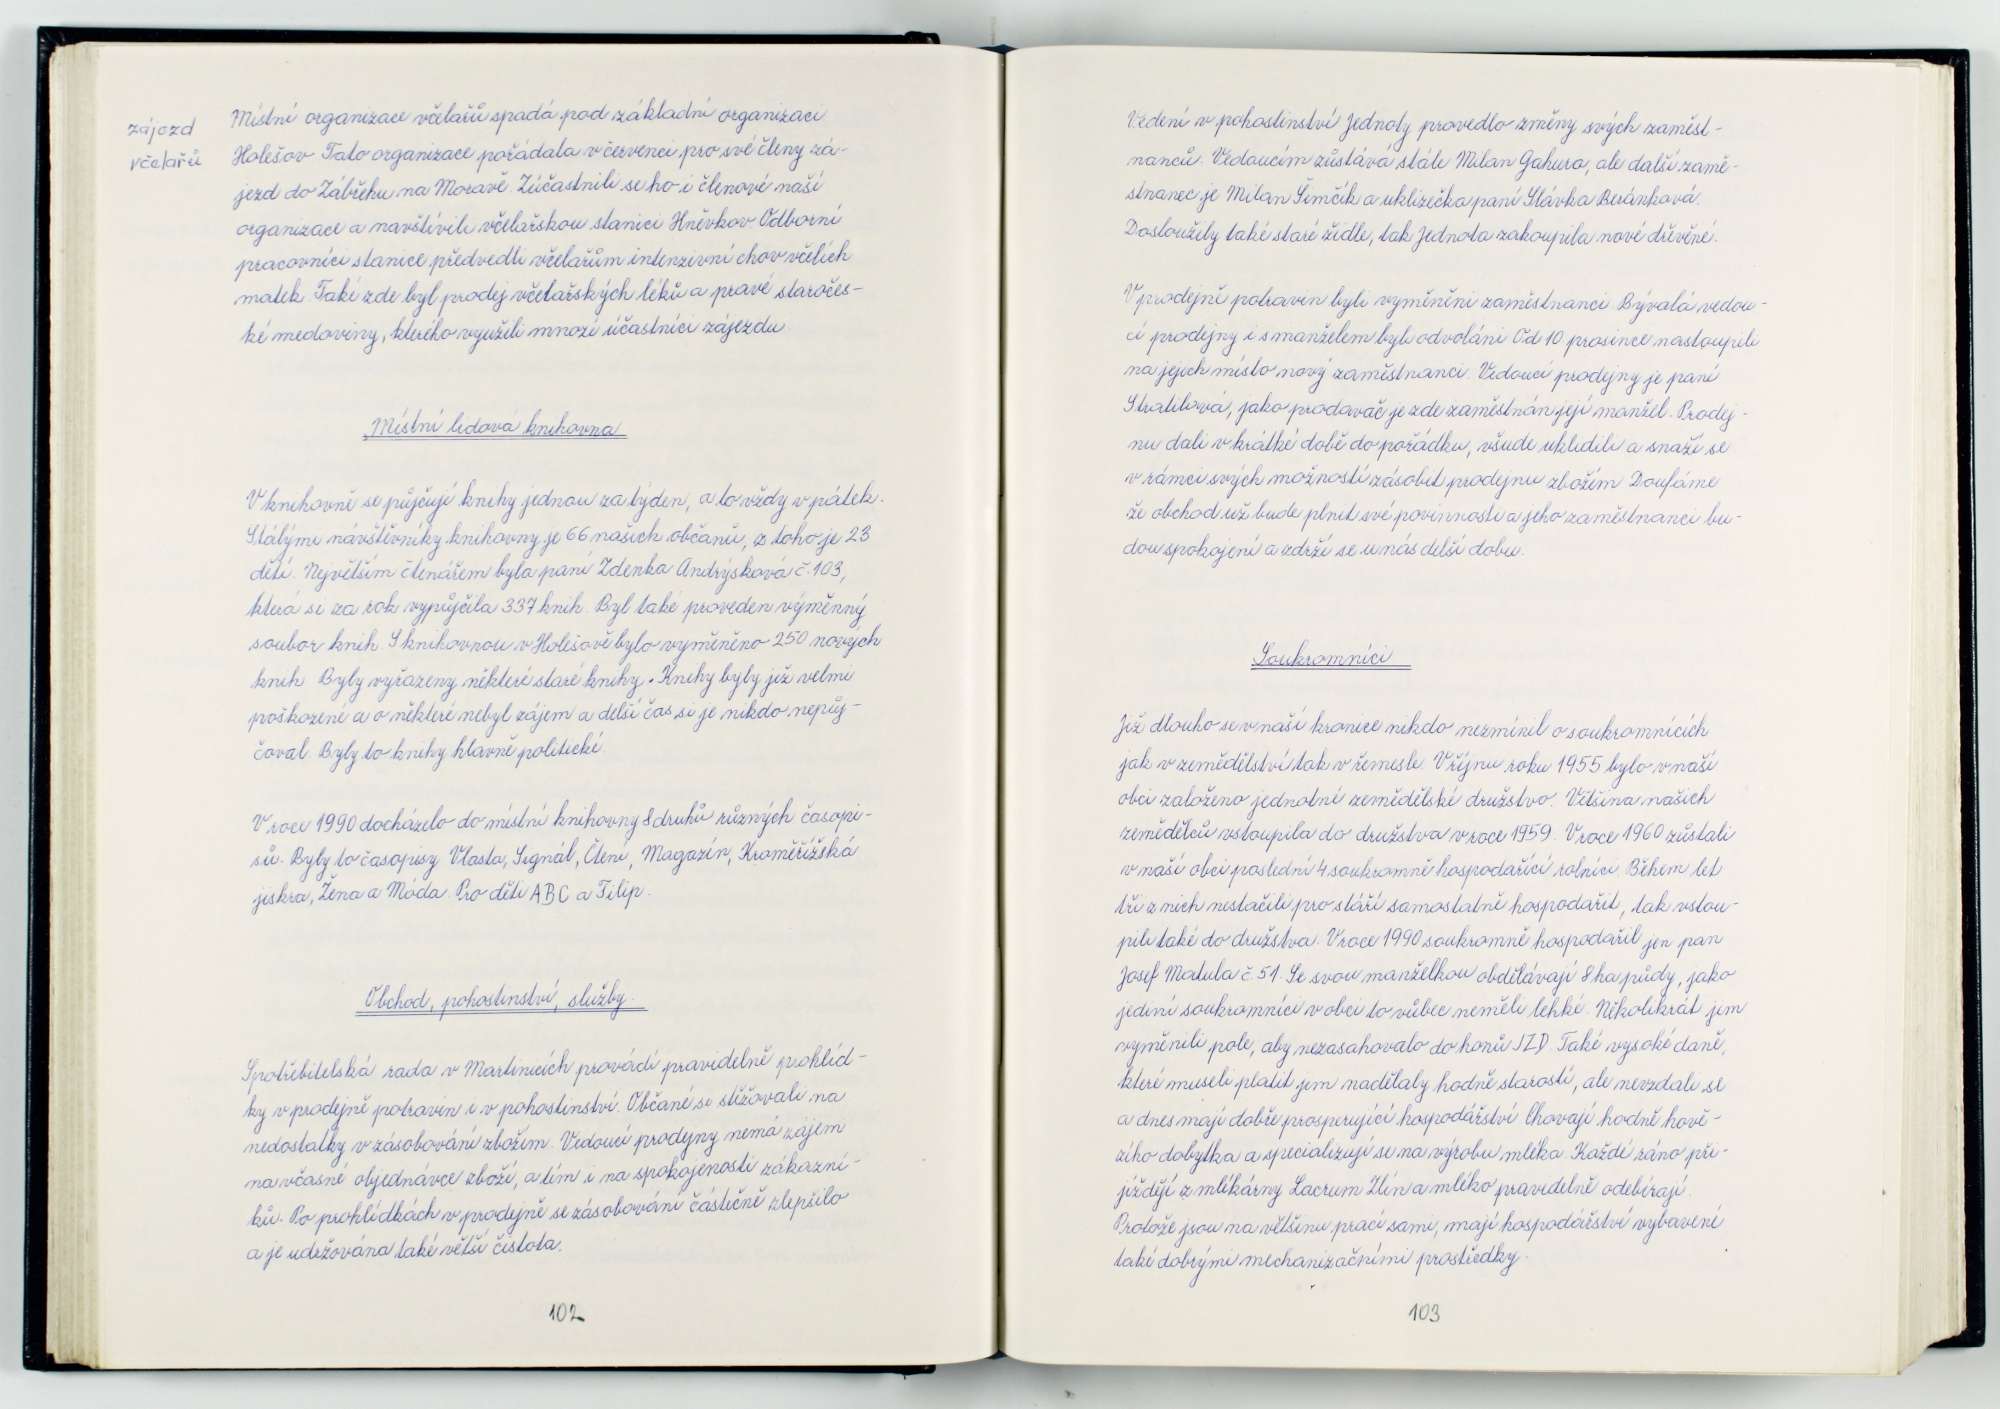 zájezd
včelařů
Místní organizace včelařů spadá pod základní organizaci
Holešov Tato organizace pořádala v červenci pro své členy zá-
jezd do Zábřehu na Moravě. Zúčastnili se ho i členové naší
organizace a navštívili včelařskou stanici Hněvkov. Odborní
pracovníci stanice předvedli včelařům intenzivní chov včelích
matek. Také zde byl prodej včelařských léků a pravé staročes-
ké medoviny, kterého využili mnozí účastníci zájezdu
Místní lidová knihovna
V knihovně se půjčují knihy jednou za týden, a to vždy v pátek.
Stálými návštěvníky knihovny je 66 našich občanů, z toho je 23
dětí. Největším čtenářem byla paní Zdenka Andrýsková č. 103,
která si za rok vypůjčila 337 knih. Byl také proveden výměnný
soubor knih. S knihovnou v Holešově bylo vyměněno 250 nových
knih Byly vyřazeny některé staré knihy. Knihy byly již velmi
poškozené a o některé nebyl zájem a delší čas si je nikdo nepůj-
čoval. Byly to knihy hlavně politické.
V roce 1990 docházelo do místní knihovny 8 druhů různých časopi-
sů. Byly to časopisy Vlasta, Signál, Čtení, Magazín, Kroměřížská
jiskra, Žena a Móda. Pro děti ABC a Filip.
Obchod, pohostinství, služby.
Spotřebitelská rada v Martinicích provádí pravidelně prohlíd-
ky v prodejně potravin i v pohostinství. Občané si stěžovali na
nedostatky v zásobování zbožím. Vedoucí prodejny nemá zájem
na včasné objednávce zboží, a tím i na spokojenosti zákazní-
ků. Po prohlídkách v prodejně se zásobování částečně zlepšilo
a je udržována také větší čistota.
102
Vedení v pohostinství Jednoty provedlo změny svých zaměst-
nanců. Vedoucím zůstává stále Milan Gahura, ale další zamě-
stnanec je Milan Šimčík a uklizečka paní Slávka Beránková.
Dosloužily také staré židle, tak Jednota zakoupila nové dřevěné.
V prodejně potravin byli vyměněni zaměstnanci. Bývalá vedou-
cí prodejny i s manželem byli odvoláni. Od 10 prosince nastoupili
na jejich místo nový zaměstnanci. Vedoucí prodejny je paní
Stratilová, jako prodavač je zde zaměstnán její manžel. Prodej-
nu dali v krátké době do pořádku, všude uklidili a snaží se
v rámci svých možností zásobit prodejnu zbožím Doufáme
že obchod už bude plnit své povinnosti a jeho zaměstnanci bu-
dou spokojení a zdrží se u nás delší dobu.
Soukromníci
Již dlouho se v naší kronice nikdo nezmínil o soukromnících
jak v zemědělství tak v řemesle. V říjnu roku 1955 bylo v naší
obci založeno jednotné zemědělské družstvo. Většina našich
zemědělců vstoupila do družstva v roce 1959. V roce 1960 zůstali
v naší obci poslední 4 soukromně hospodařící rolníci. Během let
tři z nich nestačili pro stáří samostatně hospodařit, tak vstou-
pili také do družstva. V roce 1990 soukromně hospodařil jen pan
Josef Matula č. 51. Se svou manželkou obdělávají 8 ha půdy, jako
jediní soukromníci v obci to vůbec neměli lehké. Několikrát jim
vyměnili pole, aby nezasahovalo do honů JZD. Také vysoké daně,
které museli platit jim nadělaly hodně starostí, ale nevzdali se
a dnes mají dobře prosperující hospodářství. Chovají hodně hově-
zího dobytka a specializují se na výrobu mléka. Každé ráno při-
jíždějí z mlékárny Lacrum Zlín a mléko pravidelně odebírají.
Protože jsou na většinu prací sami, mají hospodářství vybavené
také dobrými mechanizačními prostředky.
103